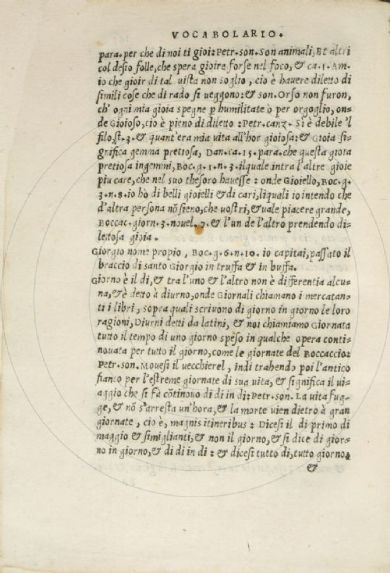 VOCABOLARIO.
para. per che di noi ti gioi: Petr. son. Son animali, Et altri
col desio folle, che spera gioire forse nel foco, & ca. 1. Am-
io che gioir di tal vista non soglio, cio è havere diletto di
simili cose che di rado si veggono: & son. Orso non furon,
ch'ogni mia gioia spegne p humilitate ò per orgoglio, on-
de Gioioso, cio è pieno di diletto: Petr. canz. Si è debile 'l
filo, st. 3. & quant'era mia vita all'hor gioiosa: & Gioia si-
gnifica gemma pretiosa, Dan. ca. 15. para. che questa gioia
pretiosa ingemmi, Boc. g. 1. n. 3. il quale intra l'altre gioie
piu care, che nel suo thesoro havesse: onde Gioiello, Boc. g.
3. n. 8. io hò di belli gioielli & di cari, li quali io intendo che
d'altra persona nõ sieno, che vostri, & vale piacere grande,
Boccac. giorn. 3. novel. 7. & l'un de l'altro prendendo di-
lettosa gioia.
Giorgio nome propio, Boc. g. 6. n. 10. io capitai, passato il
braccio di santo Giorgio in truffa & in buffa.
Giorno è il dì, & tra l'uno & l'altro non è differentia alcu-
na, & è detto à diurno, onde Giornali chiamano i mercatan-
ti i libri, sopra quali scrivono di giorno in giorno le loro
ragioni, Diurni detti da latini, & noi chiamiamo Giornata
tutto il tempo di uno giorno speso in qualche opera conti-
nouata per tutto il giorno, come le giornate del Boccaccio:
Petr. son. Movesi il vecchierel, indi trahendo poi l'antico
fianco per l'estreme giornate di sua vita, & significa il vi-
aggio che si fà cõtinouo di dì in dì: Petr. son. La vita fug-
ge, & nõ s'arresta un'hora, & la morte vien dietro à gran
giornate, cio è, magnis itineribus: Dicesi il dì primo di
maggio & simiglianti, & non il giorno, & si dice di gior-
no in giorno, & di dì in dì: & dicesi tutto dì, tutto giorno,
&